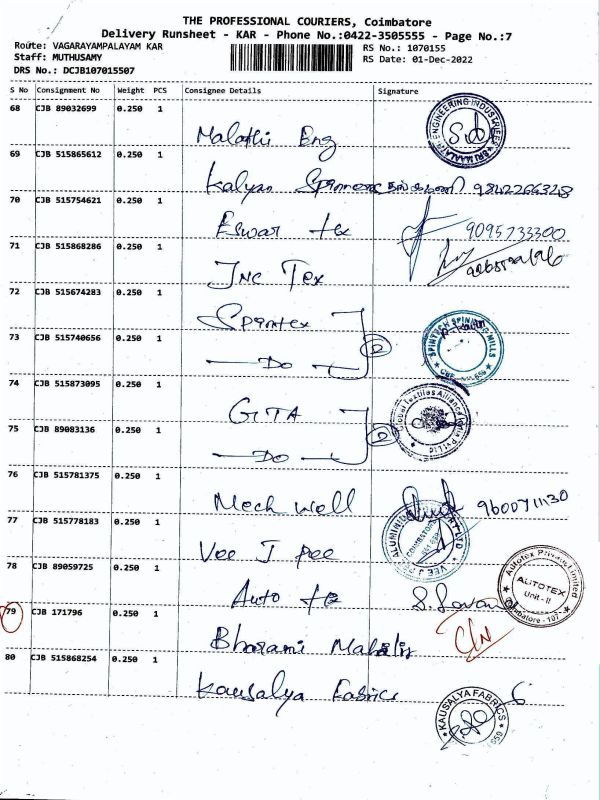 THE PROFESSIONAL COURIERS, Coimbatore
Delivery Runsheet - KAR - Phone No.:0422-3505555 - Page No.:7
Route: VAGARAYAMPALAYAM KAR
RS No.: 1070155
Staff: MUTHUSAMY
RS Date: 01-Dec-2022
DRS No.: DCJB107015507
S No Consignment No Weight PCS Consignee Details Signature
68 CJB 89032699 0.250 1 Malathi Eng
ENGINEERING INDUSTRIES
69 CJB 515865612 0.250 1 Kalyan 9842266328
70 CJB 515754621 0.250 1 Eswar tex 9095733300
71 CJB 515868286 0.250 1 Inc Tex
72 CJB 515674283 0.250 1 Spintex
SPINTECH SPINNING MILLS
73 CJB 515740656 0.250 1 Do 2
74 CJB 515873095 0.250 1 GITA
Global Textiles Alliance India Pvt Ltd
75 CJB 89083136 0.250 1 Do 2
76 CJB 515781375 0.250 1 Mech Well 9600711130
77 CJB 515778183 0.250 1 Vee J Pee
VEE J PEE ALUMINIUM
COIMBATORE
78 CJB 89059725 0.250 1 Auto tex
Autotex Private Limited
AUTOTEX
Unit - II
Coimbatore - 107
79 CJB 171796 0.250 1 Bharani
80 CJB 515868254 0.250 1 Kausalya Fabrics
KAUSALYA FABRICS